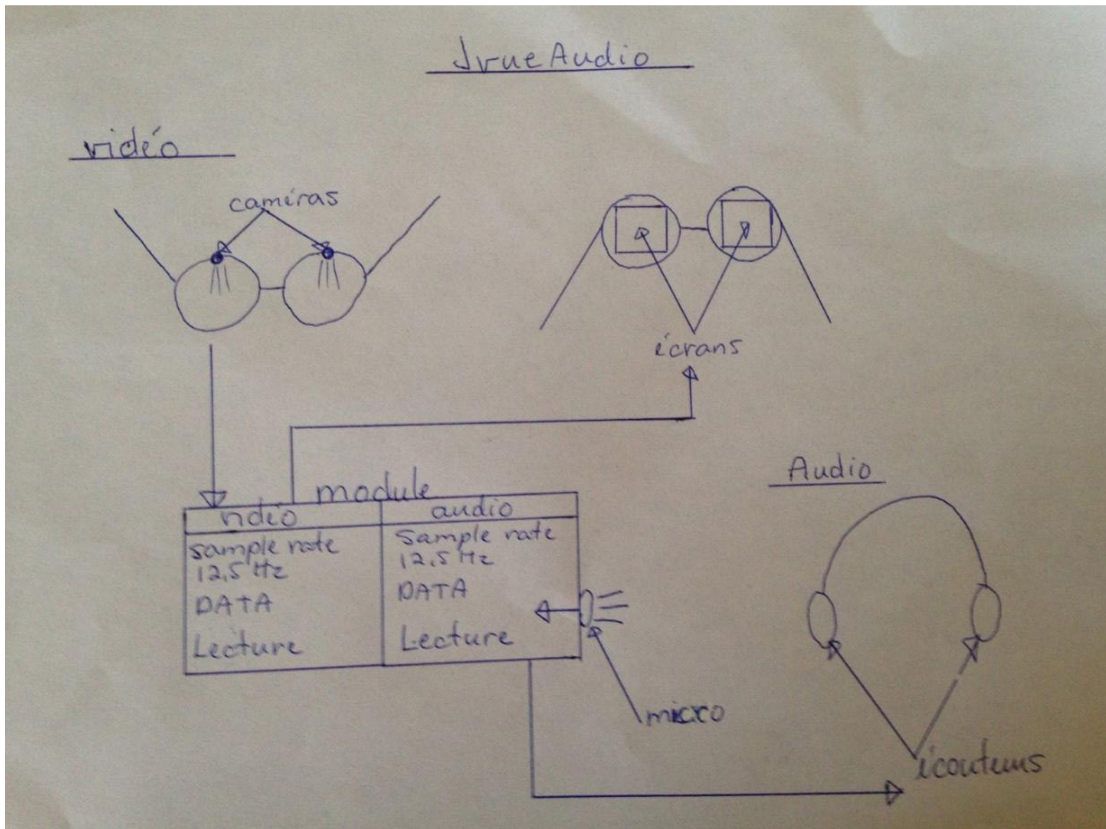 JvueAudio
vidéo
caméras
écrans
Audio
module
vidéo
audio
sample rate
12,5 Hz
DATA
Lecture
Sample rate
12,5 Hz
DATA
Lecture
micro
écouteurs